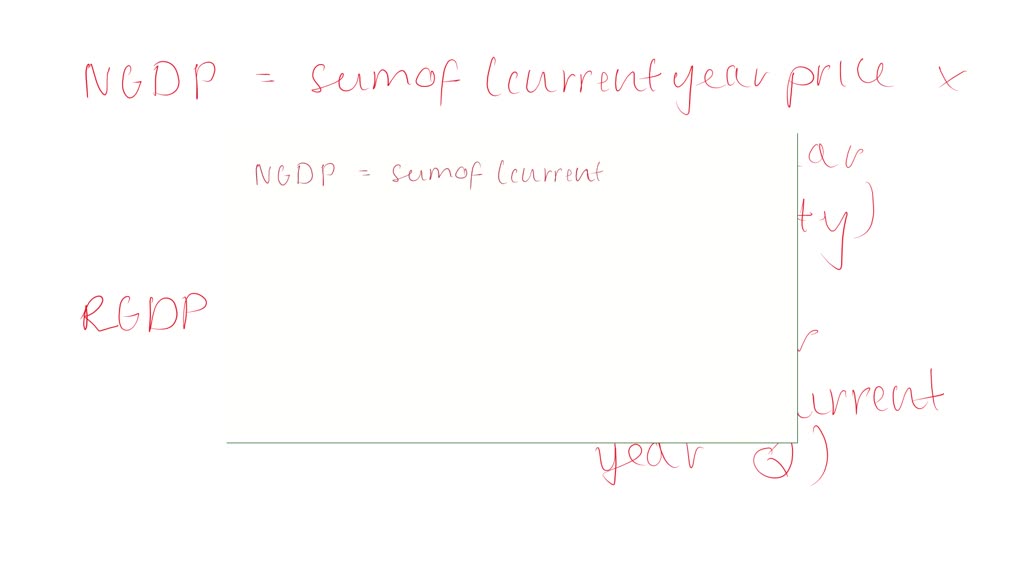 NGDP = sumof (currentyear price x
ar
NGDP = sumof (current
ty)
RGDP
r
urrent
year Q)